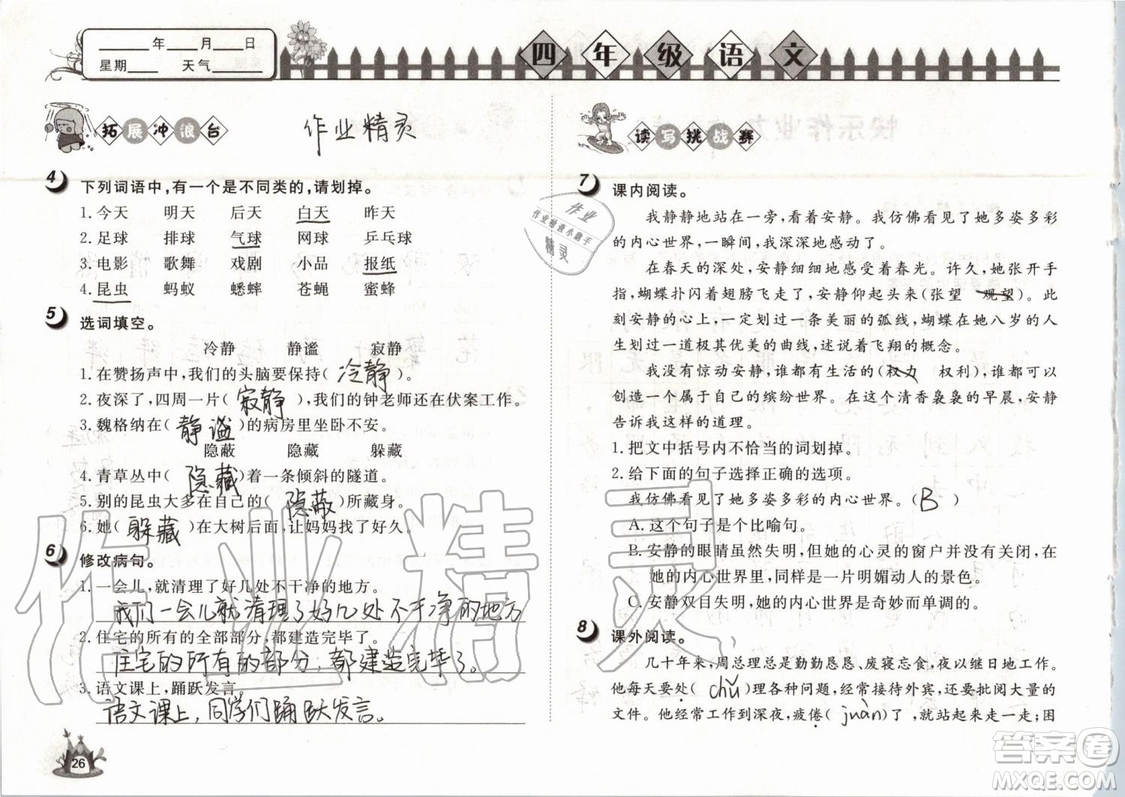 ____年____月____日
星期____ 天气____
四年级语文
拓展冲浪台
作业精灵
4 下列词语中,有一个是不同类的,请划掉。
1.今天 明天 后天 白天 昨天
2.足球 排球 气球 网球 乒乓球
3.电影 歌舞 戏剧 小品 报纸
4.昆虫 蚂蚁 蟋蟀 苍蝇 蜜蜂
5 选词填空。
冷静 静谧 寂静
1.在赞扬声中,我们的头脑要保持(冷静)。
2.夜深了,四周一片(寂静),我们的钟老师还在伏案工作。
3.魏格纳在(静谧)的病房里坐卧不安。
隐蔽 隐藏 躲藏
4.青草丛中(隐藏)着一条倾斜的隧道。
5.别的昆虫大多在自己的(隐蔽)所藏身。
6.她(躲藏)在大树后面,让妈妈找了好久。
6 修改病句。
1.一会儿,就清理了好几处不干净的地方。
我们一会儿就清理了好几处不干净的地方
2.住宅的所有的全部部分,都建造完毕了。
住宅的所有的部分,都建造完毕了。
3.语文课上,踊跃发言。
语文课上,同学们踊跃发言。
26
读写挑战赛
7 课内阅读。
我静静地站在一旁,看着安静。我仿佛看见了她多姿多彩
的内心世界,一瞬间,我深深地感动了。
在春天的深处,安静细细地感受着春光。许久,她张开手
指,蝴蝶扑闪着翅膀飞走了,安静仰起头来(张望 观望)。此
刻安静的心上,一定划过一条美丽的弧线,蝴蝶在她八岁的人
生划过一道极其优美的曲线,述说着飞翔的概念。
我没有惊动安静。谁都有生活的(权力 权利),谁都可以
创造一个属于自己的缤纷世界。在这个清香袅袅的早晨,安静
告诉我这样的道理。
1.把文中括号内不恰当的词划掉。
2.给下面的句子选择正确的选项。
我仿佛看见了她多姿多彩的内心世界。(B)
A.这个句子是个比喻句。
B.安静的眼睛虽然失明,但她的心灵的窗户并没有关闭,在
她的内心世界里,同样是一片明媚动人的景色。
C.安静双目失明,她的内心世界是奇妙而单调的。
8 课外阅读。
几十年来,周总理总是勤勤恳恳、废寝忘食,夜以继日地工作。
他每天要处(chǔ)理各种问题,经常接待外宾,还要批阅大量的
文件。他经常工作到深夜,疲倦(juàn)了,就站起来走一走;困
作业
作业检查小助手
精灵
作业精灵
答案圈
MXQE.COM